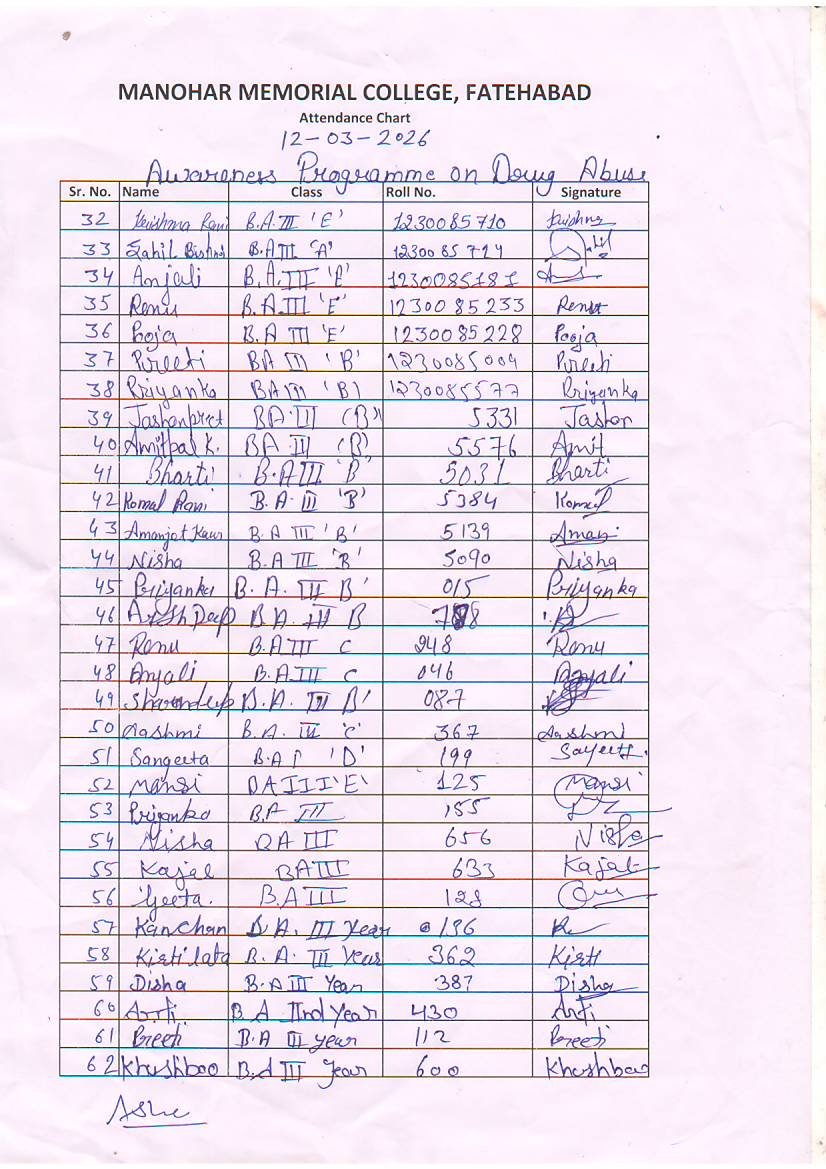 MANOHAR MEMORIAL COLLEGE, FATEHABAD
Attendance Chart
12-03-2026
Awareness Programme on Drug Abuse
Sr. No. Name Class Roll No. Signature
32 Karishma Rani B.A.III 'E' 1230085710 Karishma
33 Sahil B.A III 'A' 1230085724
34 Anjali B.A.III 'E' 1230085181
35 Renu B.A.III 'E' 1230085233 Renu
36 Pooja B.A III 'E' 1230085228 Pooja
37 Preeti BA III 'B' 1230085009 Preeti
38 Priyanka BA III 'B) 1230085577 Priyanka
39 Jashanpreet BA.III (B) 5331 Jashan
40 Amitpal K. BA III (B) 5576 Amit
41 Bharti B.A III 'B' 5031 Bharti
42 Komal Rani B.A. III 'B' 5384 Komal
43 Amanjot Kaur B.A III 'B' 5139 Aman
44 Nisha B.A III 'B' 5090 Nisha
45 Priyanka B.A. III B' 015 Priyanka
46 ArshDeep B.A. III B
47 Renu B.A III C 248 Renu
48 Anjali B.A.III C 046 Anjali
49 Sharandeep B.A. III B' 087
50 Aashmi B.A. III 'C' 367 Aashmi
51 Sangeeta B.A I 'D' 199
52 Mansi BA III 'E' 125 Mansi
53 Priyanka B.A III 155
54 Nisha BA III 656 Nisha
55 Kajal BA III 633 Kajal
56 Geeta. B.A III 128
57 Kanchan B.A. III Year 196
58 Kirti lata B.A. III Year 362 Kirti
59 Disha B.A III Year 387 Disha
60 Arti B A IInd Year 430 Arti
61 Preeti B.A III year 112 Preeti
62 Khushboo B.A III Year 600 Khushboo